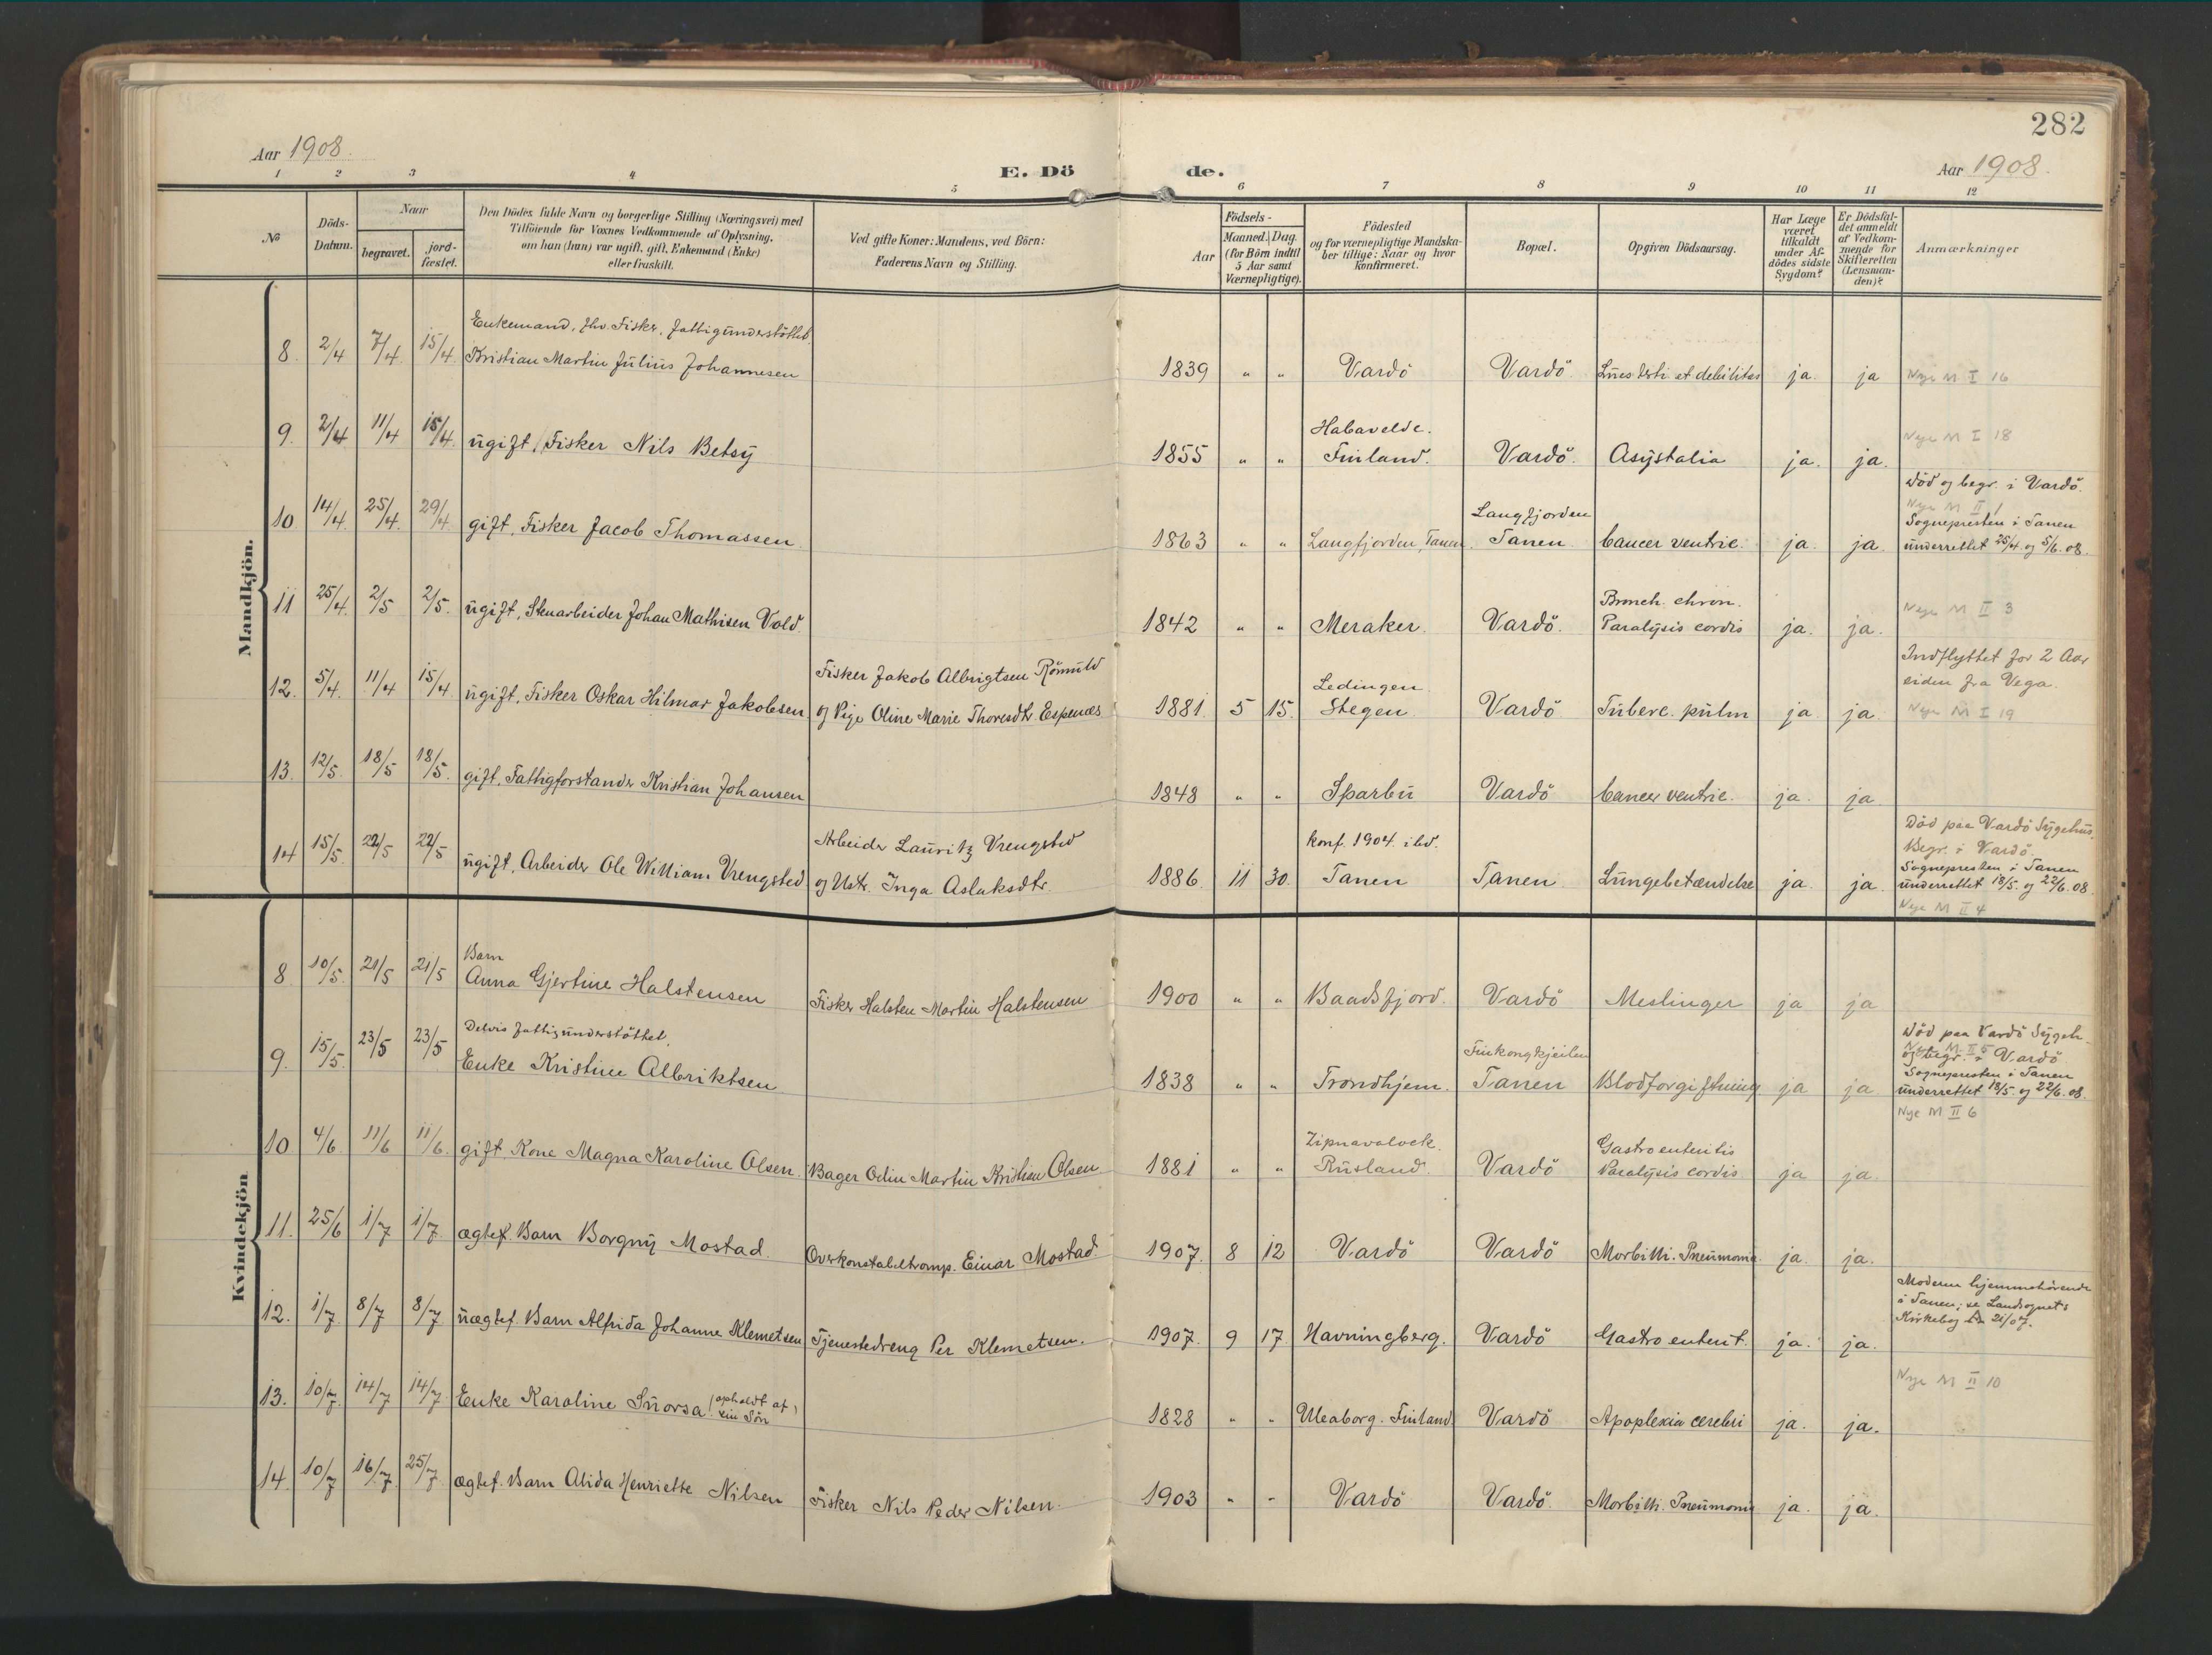 282
Aar 1908.
E. Dö
de.
Aar 1908.
1 2 3 4 5 6 7 8 9 10 11 12
No
Döds-
Datum.
Naar
begravet.
jord-
fæstet.
Den Dödes fulde Navn og borgerlige Stilling (Næringsvei) med
Tilföiende for Voxnes Vedkommende af Oplysning,
om han (hun) var ugift, gift, Enkemand (Enke)
eller fraskilt.
Ved gifte Koner: Mandens, ved Börn:
Faderens Navn og Stilling.
Födsels-
Aar
Maaned. Dag.
(for Börn indtil
5 Aar samt
Værnepligtige).
Födested
og for værnepligtige Mandska-
ber tillige: Naar og hvor
konfirmeret.
Bopæl.
Opgiven Dödsaarsag.
Har Læge
været
tilkaldt
under Af-
dödes sidste
Sygdom?
Er Dödsfal-
det anmeldt
af Vedkom-
mende for
Skifteretten
(Lensman-
den)?
Anmærkninger
Mandkjön.
Enkemand, fhv. Fisker, fattigunderstöttet.
8. 2/4 7/4. 15/4. Kristian Martin Julius Johannesen 1839 " " Vardö Vardö. et debilitas ja. ja Nye M I 16
Habavelde.
9. 2/4 11/4 15/4. ugift, Fisker Nils Betsy 1855 " " Finland. Vardö. Asystalia ja. ja. Nye M I 18
Död og begr. i Vardö.
Nye M II 1
Langfjorden Sognepresten i Tanen
10 14/4. 25/4. 29/4. gift, Fisker Jacob Thomassen. 1863 " " Langfjorden, Tanen. Tanen Cancer ventric. ja. ja. underrettet 25/4 og 5/6. 08.
Bronch. chron.
11 25/4. 2/5 2/5. ugift, Stenarbeider Johan Mathisen Vold. 1842 " " Meraker. Vardö. Paralysis cordis ja. ja. Nye M II 3
Fisker Jakob Albrigtsen Römuld Ledingen Indflyttet for 2 Aar
siden fra Vega.
12. 5/4. 11/4 15/4. ugift, Fisker Oskar Hilmar Jakobsen og Pige Oline Marie Thoresdtr. Espenæs 1881. 5 15. Stegen Vardö Tuberc. pulm ja ja. Nye M I 19
13. 12/5. 18/5 18/5. gift, Fattigforstander Kristian Johansen 1848 " " Sparbu Vardö Cancer ventric. ja. ja.
Arbeider Lauritz Vrengsted konf. 1904. ibd. Död paa Vardö Sygehus.
Begr. i Vardö.
Sognepresten i Tanen
14 15/5. 22/5 22/5 ugift, Arbeider Ole William Vrengsted og Hstr. Inga Aslaksdtr. 1886. 11 30. Tanen Tanen Lungebetændelse ja. ja. underrettet 18/5. og 22/6. 08.
Nye M II 4
Kvindekjön
Barn
8 10/5. 21/5 21/5 Anna Gjertine Halstensen Fisker Halsten Martin Halstensen 1900 " " Baadsfjord. Vardö Meslinger ja ja
Nye M II 5
Delvis fattigunderstöttet. Död paa Vardö Sygeh.
og begr. i Vardö
Sognepresten i Tanen
9. 15/5. 23/5 23/5 Enke Kristine Albriktsen 1838 " " Trondhjem. Finkongkjeilen Tanen Blodforgiftning ja ja underrettet 18/5. og 22/6. 08.
Nye M II 6
Zipnavalock. Gastro enteritis
10 4/6 11/6 11/6. gift Kone Magna Karoline Olsen. Bager Odin Martin Kristian Olsen 1881 " " Rusland. Vardö Paralysis cordis ja ja.
11. 25/6 1/7 1/7. ægtef. Barn Borgny Mostad. Overkonstabeltromp. Einar Mostad. 1907. 8 12 Vardö Vardö Morbilli. Pneumonia. ja. ja.
Moderen hjemmehörende
i Tanen; se Landsognets
Kirkebog 21/07.
12. 1/7. 8/7 8/7 uægtef. Barn Alfrida Johanne Klemetsen Tjenestedreng Per Klemetsen. 1907. 9 17 Havningberg. Vardö Gastro enterit. ja. ja.
Nye M II 10
13. 10/7. 14/7 14/7 Enke Karoline Snorsa (opholdt af sin Sön) 1828 " " Uleaborg. Finland Vardö Apoplexia cerebri ja. ja.
14. 10/7 16/7. 25/7. ægtef. Barn Alida Henriette Nilsen Fisker Nils Peder Nilsen. 1903 " " Vardö Vardö. Morbilli. Pneumonia ja. ja.